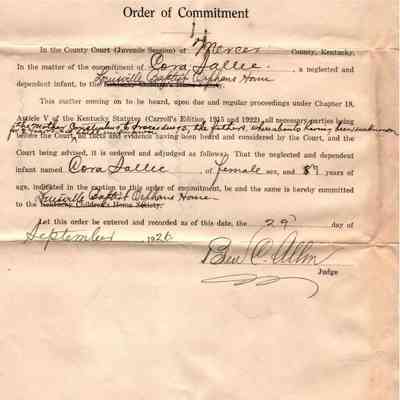 Order of Commitment
In the County Court (Juvenile Session) of Mercer County, Kentucky.
In the matter of the commitment of Cora Sallee, a neglected and
Louisville Baptist Orphans Home
dependent infant, to the Kentucky Children's Home Society.
This matter coming on to be heard, upon due and regular proceedings under Chapter 18,
Article V of the Kentucky Statutes (Carroll's Edition 1915 and 1922), all necessary parties being
the mother the proceedings, the fathers whereabouts having been unknown
before the Court, all facts and evidence having been heard and considered by the Court, and the
Court being advised, it is ordered and adjudged as follows: That the neglected and dependent
infant named Cora Sallee of female sex, and years of
age, indicated in the caption to this order of commitment, be and the same is hereby committed
Louisville Baptist Orphans Home
to the Kentucky Children's Home Society.
Let this order be entered and recorded as of this date, the 29 day of
September, 1926
Ben C. Allin
Judge